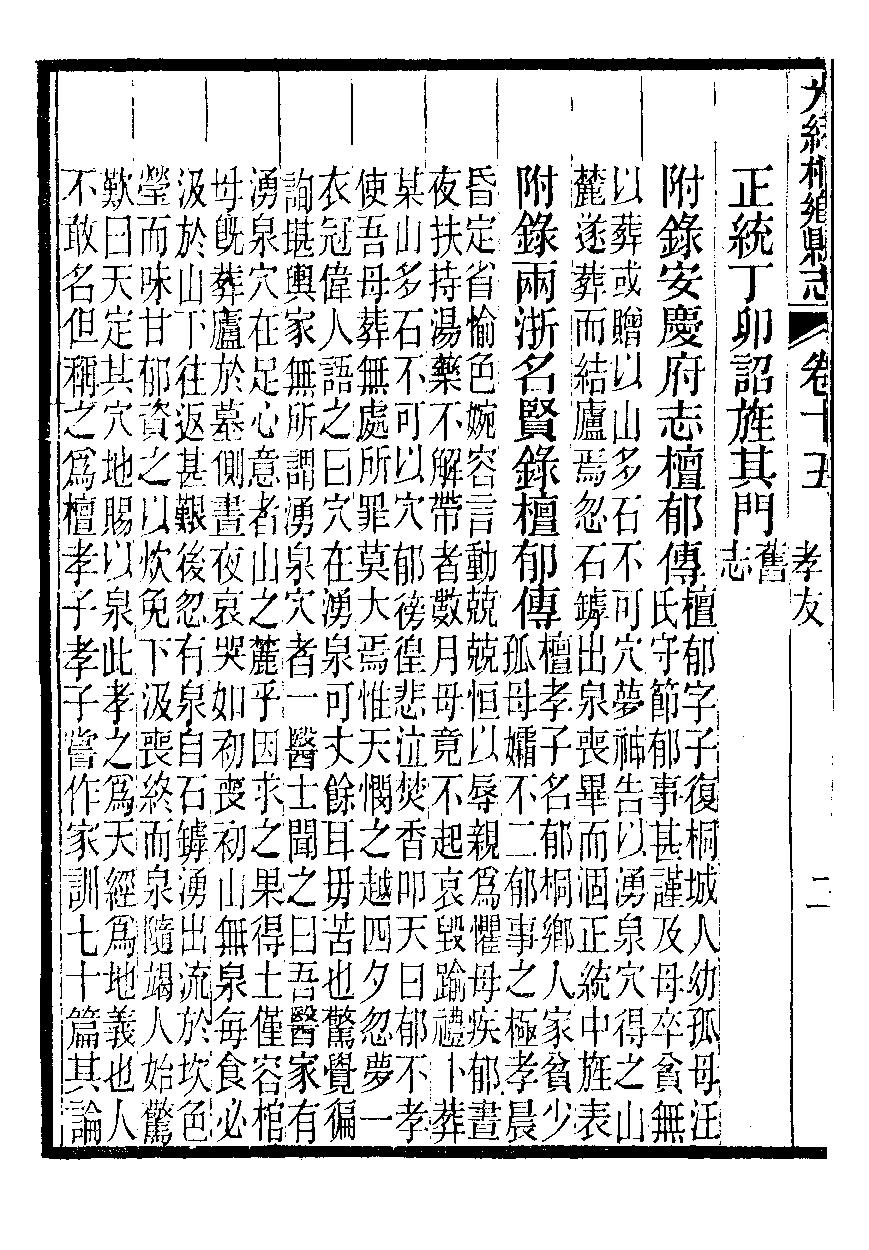 光緒桐鄉縣志 卷十五 孝友 二
正統丁卯詔旌其門 舊志
附錄安慶府志檀郁傳 檀郁字子復桐城人幼孤母汪
氏守節郁事甚謹及母卒貧無
以葬或贈以山多石不可穴夢神告以湧泉穴得之山
麓遂葬而結廬焉忽石罅出泉喪畢而涸正統中旌表
附錄兩浙名賢錄檀郁傳 檀孝子名郁桐鄉人家貧少
孤母孀不二郁事之極孝晨
昏定省愉色婉容言動兢兢恒以辱親爲懼母疾郁晝
夜扶持湯藥不解帶者數月母竟不起哀毀踰禮卜葬
某山多石不可以穴郁徬徨悲泣焚香叩天曰郁不孝
使吾母葬無處所罪莫大焉惟天憫之越四夕忽夢一
衣冠偉人語之曰穴在湧泉可丈餘耳毋苦也驚覺徧
詢堪輿家無所謂湧泉穴者一醫士聞之曰吾醫家有
湧泉穴在足心意者山之麓乎因求之果得土僅容棺
母旣葬廬於墓側晝夜哀哭如初喪初山無泉每食必
汲於山下往返甚艱後忽有泉自石罅湧出流於坎色
瑩而味甘郁資之以炊免下汲喪終而泉隨竭人始驚
歎曰天定其穴地賜以泉此孝之爲天經爲地義也人
不敢名但稱之爲檀孝子孝子嘗作家訓七十篇其論